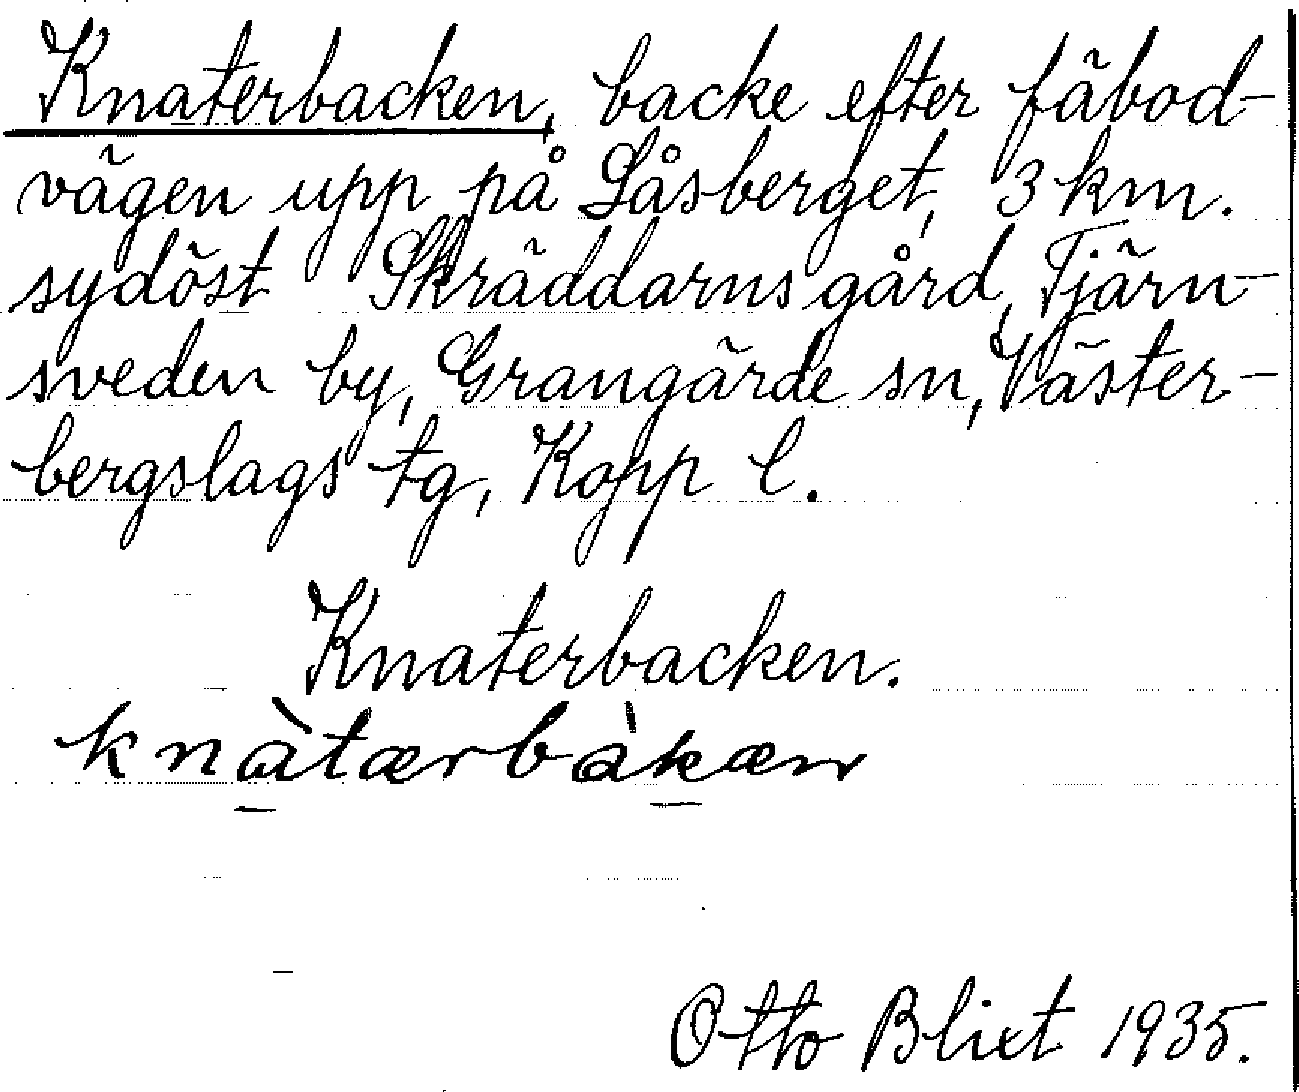 Knaterbacken, backe efter fäbod-
vägen upp på Låsberget, 3 km.
sydöst Skräddarnsgård, Tjärn-
sveden by, Grangärde sn, Väster-
bergslags tg, Kopp l.
Knaterbacken.
knàtærbàkæn
Otto Blixt 1935.